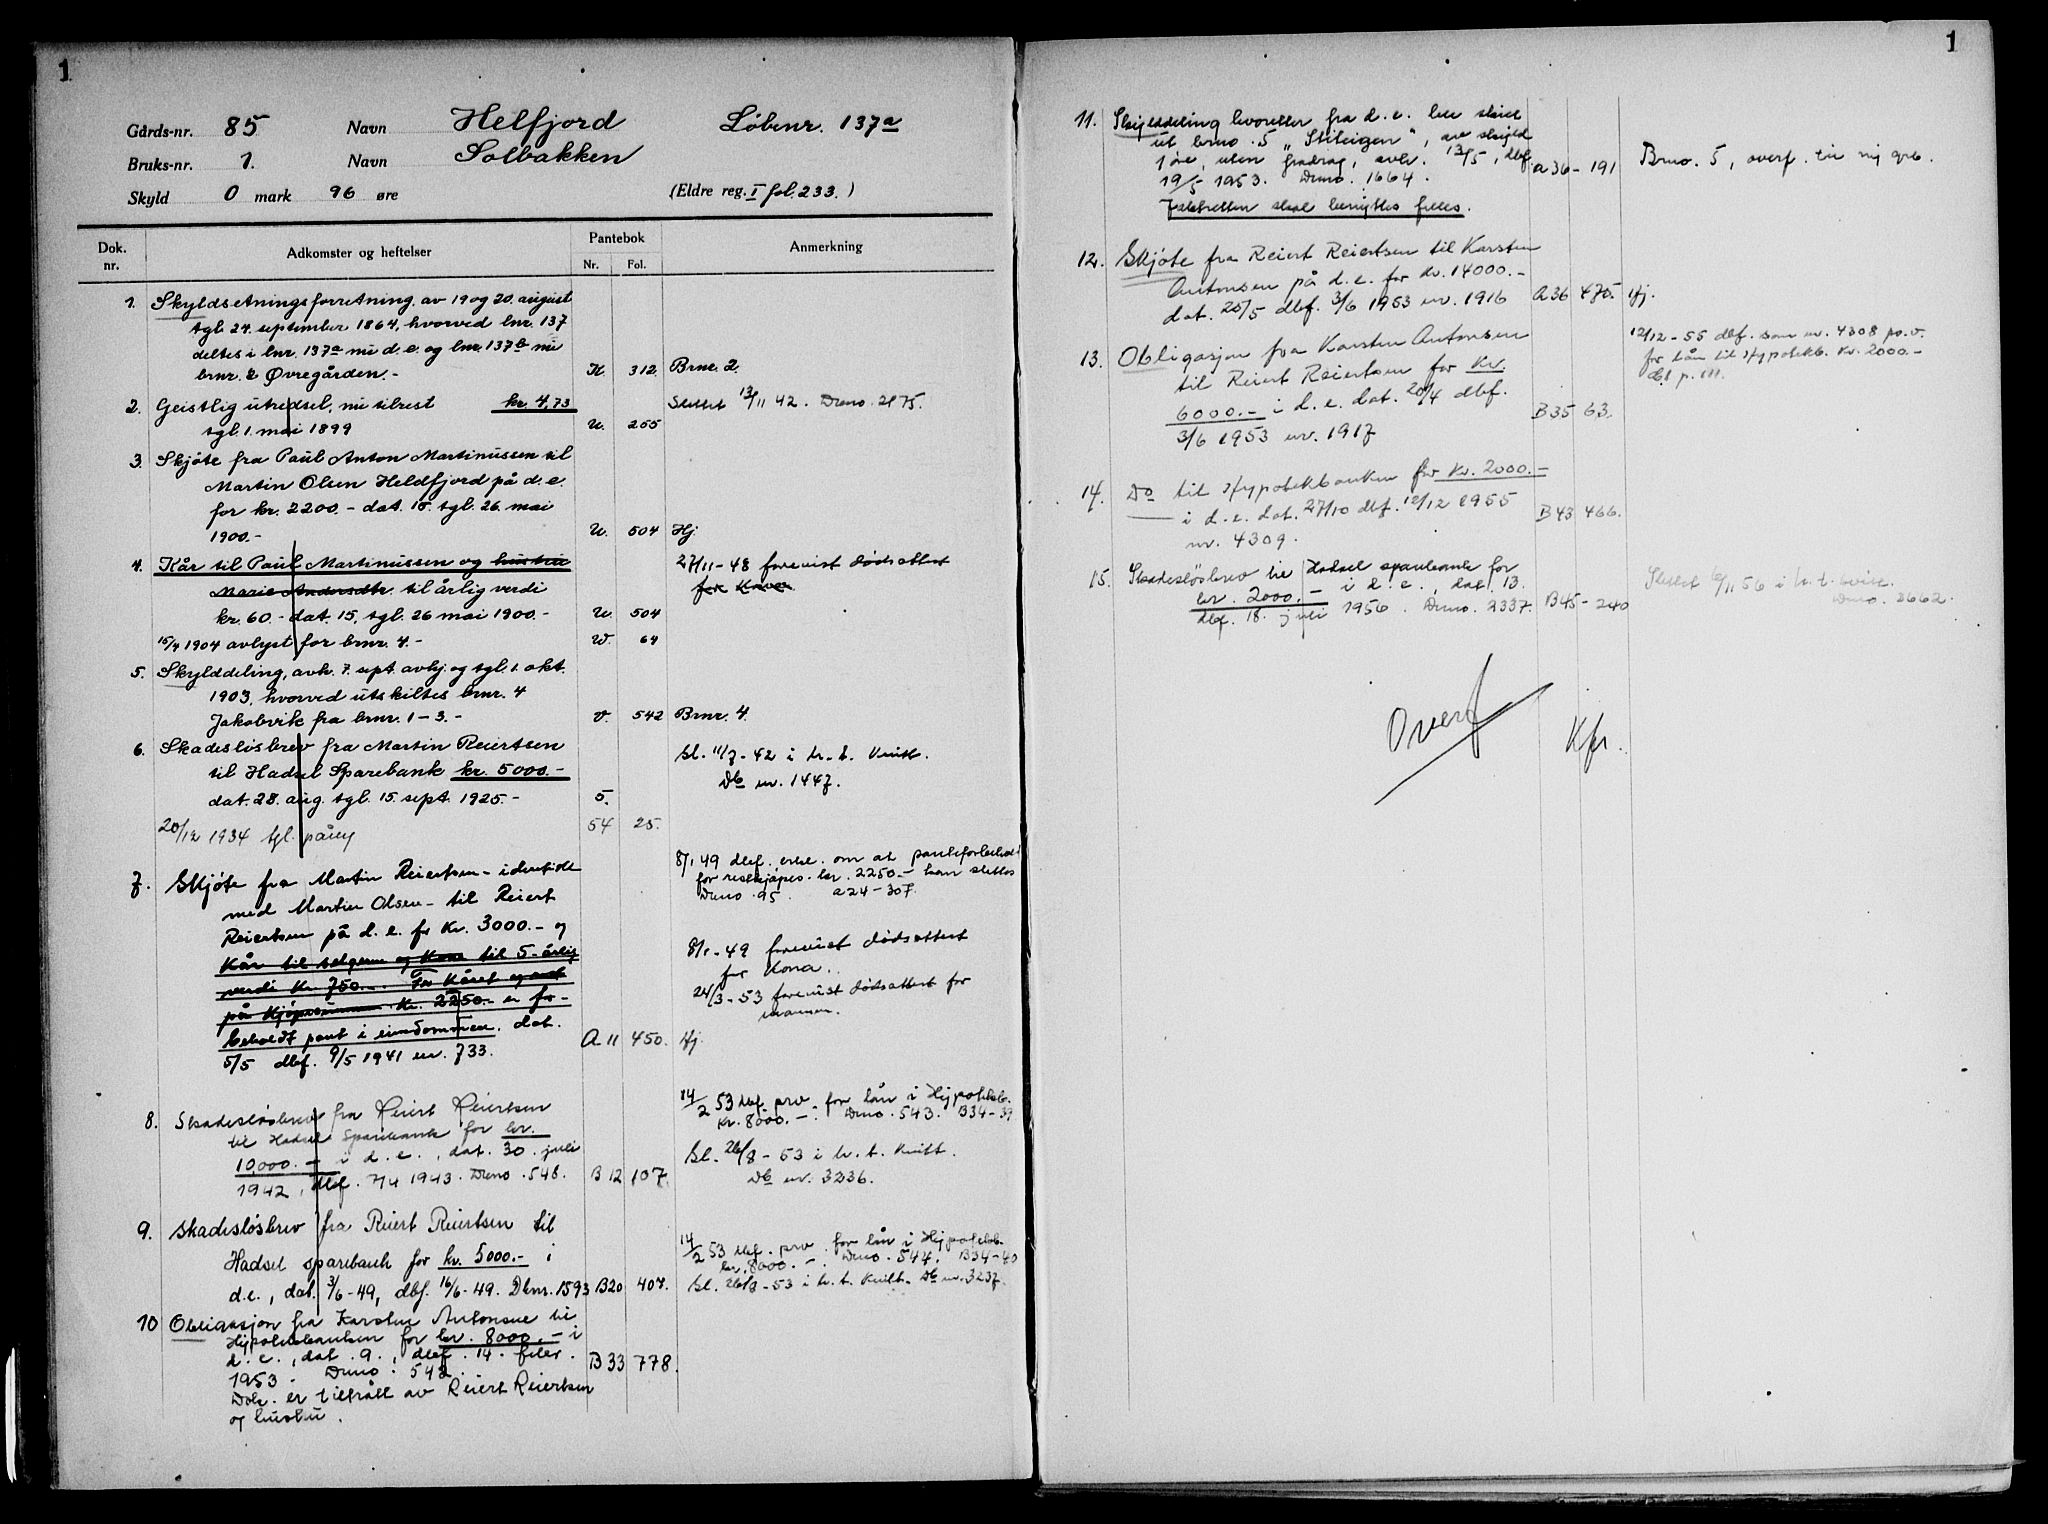 1
Gårds-nr. 85 Navn Helfjord Løbenr. 137a
Bruks-nr. 1. Navn Solbakken
Skyld 0 mark 96 øre (Eldre reg. I fol. 233.)
Dok. nr. Adkomster og heftelser Pantebok Nr. Fol. Anmerkning
1. Skyldsetningsforretning av 19 og 20. august
tgl. 24. september 1864, hvorved lnr. 137
deltes i lnr. 137a nu d.e. og lnr. 137b nu
brnr. 2 Øvregården.- K. 312. Brnr. 2.
2. Geistlig utredsel, nu tilrest kr. 4,73 Slettet 13/11 42. Dbno. 2175.
tgl. 1. mai 1899 U. 255
3. Skjøte fra Paul Anton Martinussen til
Martin Olsen Heldfjord på d.e.
for kr. 2200.- dat. 15. tgl. 26. mai
1900.- U. 504 Hj.
4. Kår til Paul Martinussen og hustru 27/11-48 forevist dødsattest
Marie Andersdtr. til årlig verdi for Kona
kr. 60.- dat. 15. tgl. 26 mai 1900.- U. 504
15/4 1904 avlyst for brnr. 4.- W. 64
5. Skylddeling, avh. 7. sept. avhj. og tgl. 1. okt.
1903, hvorved utskiltes brnr. 4
Jakobvik fra brnr. 1-3.- V. 542 Brnr. 4.
6. Skadesløsbrev fra Martin Reiertsen Sl. 11/7-42 i h. t. Kvitt.
til Hadsel Sparebank kr. 5000.- Db nr. 1447.
dat. 28. aug. tgl. 15. sept. 1925.- 5.
20/12 1934 tgl. påny 54 25.
8/1 49 dbf. erkl. om at panteforbehold
7. Skjøte fra Martin Reiertsen - identisk for restkjøpes. kr. 2250.- kan slettes
med Martin Olsen - til Reiert Dbno. 95. A24-307
Reiertsen på d. e. for Kr. 3000.- og
Kår til selgeren og Kone til 5-årlig 8/1-49 forevist dødsattest
verdi Kr. 750.-. For Kåret og rest for Kona.
på Kjøpesummen Kr. 2250.- er for- 24/3-53 forevist dødsattest for
beholdt pant i eiendommen. dat. mannen.
5/5 dbf. 9/5 1941 nr. 733. A 11 450. Hj.
8. Skadesløsbrev fra Reiert Reiertsen 14/2 53 dbf. prv. for lån i Hypotekb.
til Hadsel Sparebank for kr. Kr. 8000.-. Dbno. 543. B34-39
10,000.- i d. e., dat. 30. juli Sl. 26/8-53 i h. t. Kvitt.
1942, dbf. 7/4 1943. Dbno. 548. B 12 107. Db nr. 3236.
9. Skadesløsbrev fra Reiert Reiertsen til 14/2 53 dbf. prv. for lån i Hypotekb.
Hadsel sparebank for kr. 5000.- i kr. 8000.-. Dbno. 544. B34-40
d.e., dat. 3/6-49, dbf. 16/6-49. Dbnr. 1593 B20 407. Sl. 26/8-53 i h. t. Kvitt. Db nr. 3237.
10 Obligasjon fra Karsten Antonsen til
Hypotekbanken for kr. 8000.- i
d. e., dat. 9., dbf. 14. febr.
1953. Dbno. 542. B 33 778.
Dok. er tiltrått av Reiert Reiertsen
og hustru.
1
11. Skylddeling hvoretter fra d. e. ble skilt
ut brno. 5 "Stiteigen", av skyld
1 øre, uten fradrag, avh. 13/5, dbf. Brno. 5, overf. til nij grb.
19/5 1953. Dbno. 1664. A36-191
Jaktretten skal benyttes felles.
12. Skjøte fra Reiert Reiertsen til Karsten
Antonsen på d. e. for kr. 14000.-
dat. 20/5 dbf. 3/6 1953 nr. 1916 A36 475. Hj.
13. Obligasjon fra Karsten Antonsen 12/12-55 dbf. som nr. 4308 pr. v.
til Reiert Reiertsen for Kr. for lån til Hypotekb. Kr. 2000.-
6000.- i d. e. dat. 20/4 dbf.
3/6 1953 nr. 1917 B35 63.
14. Do til Hypotekbanken for Kr. 2000.-
i d. e. dat. 27/10 dbf. 12/12 1955
nr. 4309. B43 466.
15. Skadesløsbrev til Hadsel sparebank for
kr. 2000.- i d. e., dat. 13. Slettet 10/11 56 i h. t. kvitt.
dbf. 18. juli 1956. Dbno. 2337. B45-240 Dbno. 3662.
Overf Kfr.